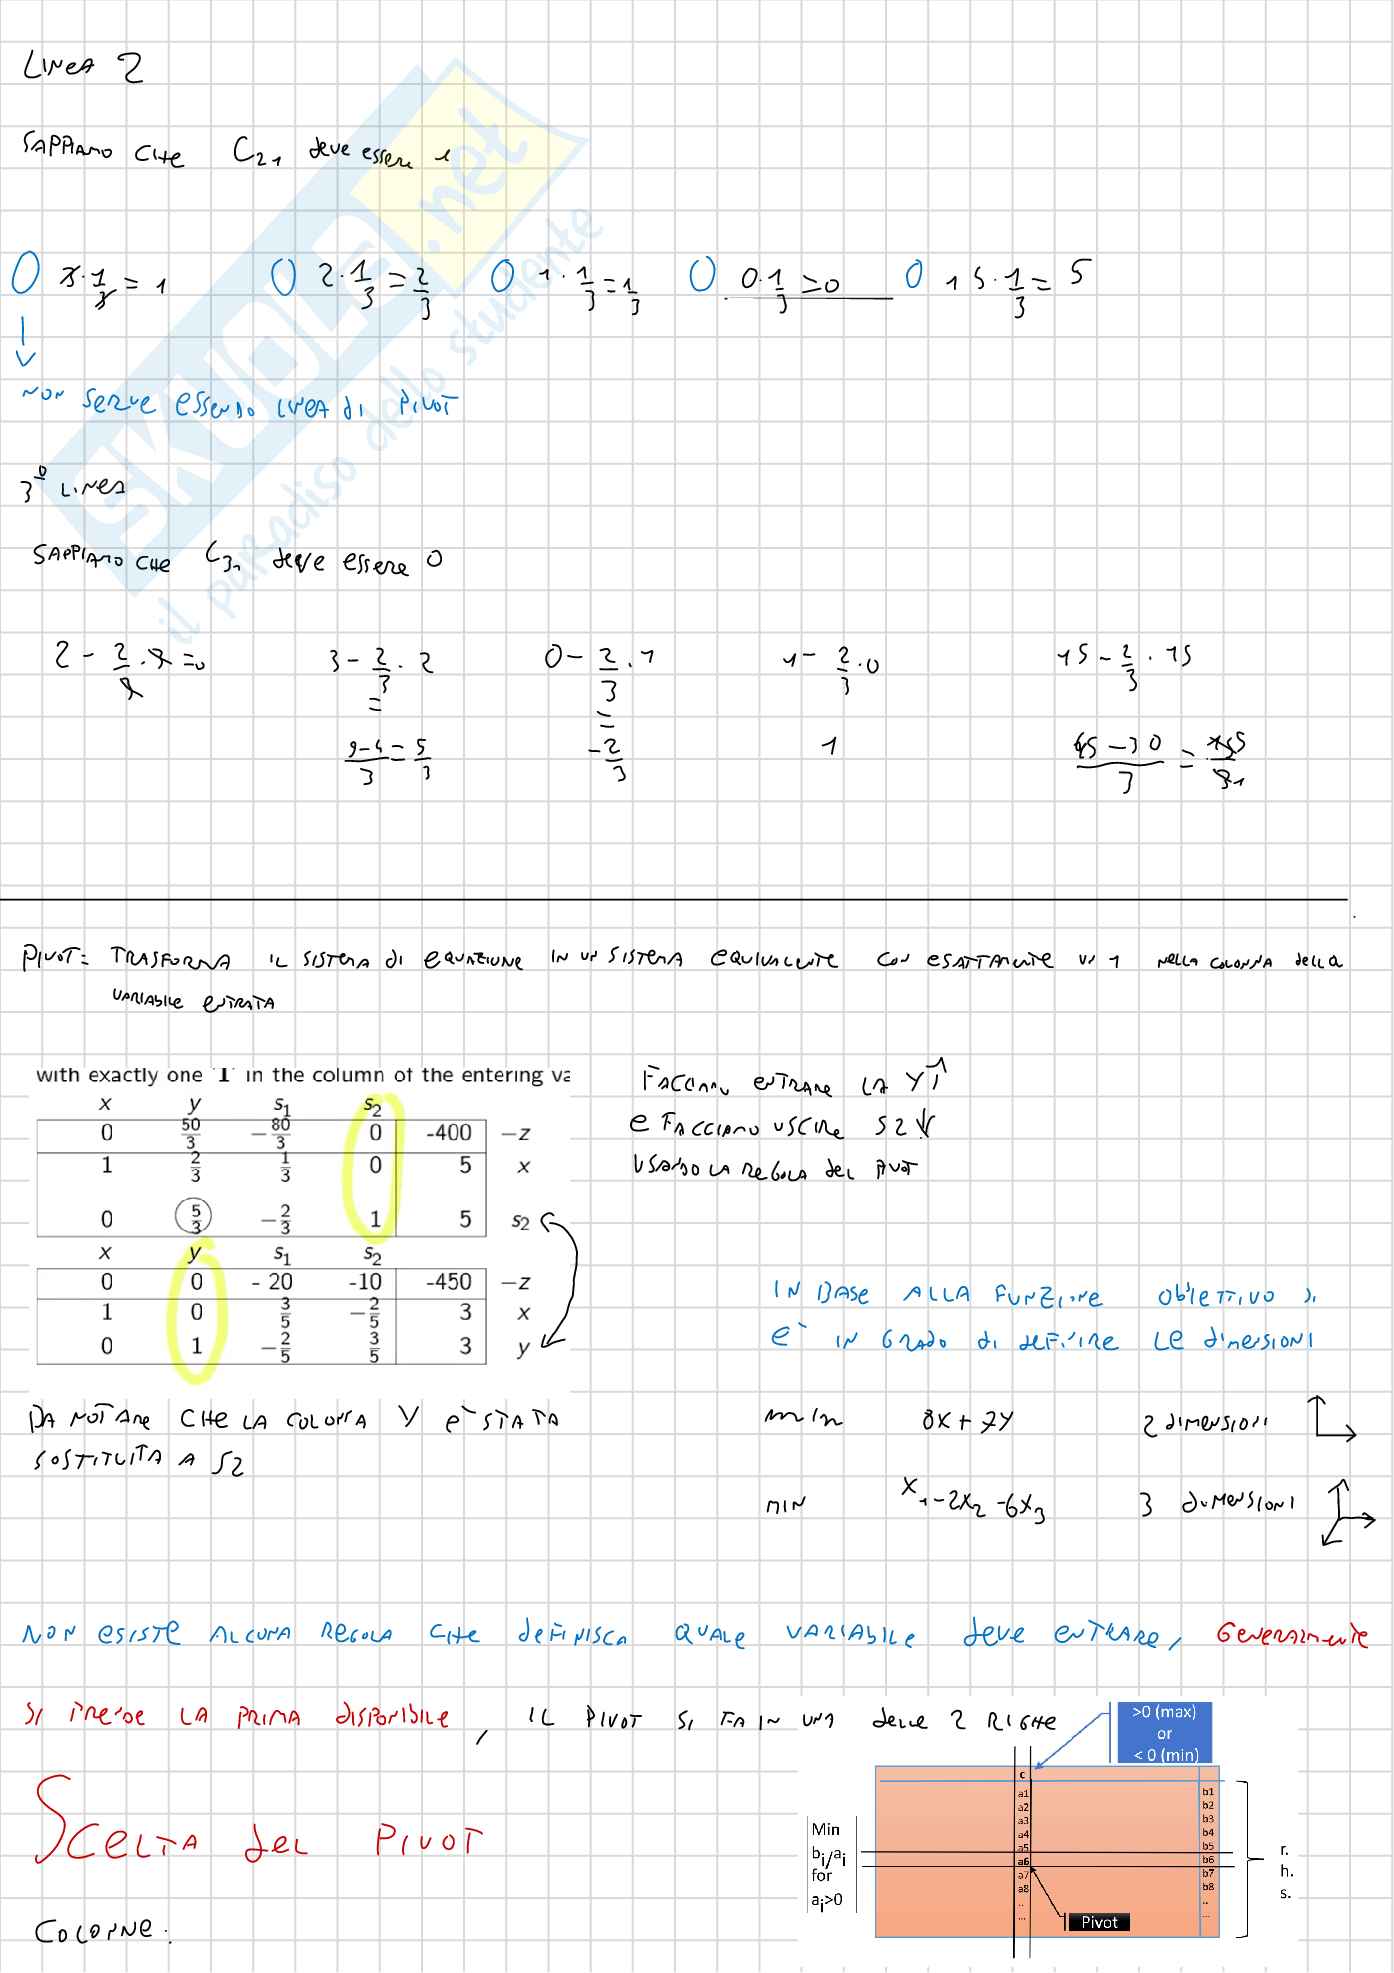 LINEA 2
SAPPIAMO CHE C21 deve essere 1
0 3·1/3 = 1 0 2·1/3 = 2/3 0 1·1/3 = 1/3 0 0·1/3 = 0 0 15·1/3 = 5
NON SERVE ESSENDO LINEA DI PIVOT
3ª LINEA
SAPPIAMO CHE C31 deve essere 0
2 - 2/3 · 3 = 0 3 - 2/3 · 2 0 - 2/3 · 1 1 - 2/3 · 0 15 - 2/3 · 15
= =
9-4/3 = 5/3 -2/3 1 45-30/3 = 15 5/3 1
PIVOT= TRASFORMA IL SISTEMA DI EQUAZIONE IN UN SISTEMA EQUIVALENTE CON ESATTAMENTE UN 1 NELLA COLONNA DELLA
VARIABILE ENTRATA
with exactly one '1' in the column of the entering va
x y s1 s2
0 50/3 -80/3 0 -400 -z
1 2/3 1/3 0 5 x
0 5/3 -2/3 1 5 s2
x y s1 s2
0 0 - 20 -10 -450 -z
1 0 3/5 -2/5 3 x
0 1 -2/5 3/5 3 y
FACCIAMO ENTRARE LA Y ↑
E FACCIAMO USCIRE S2 ↓
USANDO LA REGOLA DEL PIVOT
IN BASE ALLA FUNZIONE OBIETTIVO SI
E' IN GRADO DI DEFINIRE LE DIMENSIONI
DA NOTARE CHE LA COLONNA Y E' STATA
SOSTITUITA A S2
min 8X + 7Y 2 DIMENSIONI
MIN X1 - 2X2 - 6X3 3 DIMENSIONI
NON ESISTE ALCUNA REGOLA CHE DEFINISCA QUALE VARIABILE DEVE ENTRARE, GENERALMENTE
SI PRENDE LA PRIMA DISPONIBILE, IL PIVOT SI FA IN UNA DELLE 2 RIGHE
SCELTA DEL PIVOT
COLONNE:
>0 (max)
or
< 0 (min)
c
a1 b1
a2 b2
a3 b3
a4 b4
a5 b5
a6 b6
a7 b7
a8 b8
.. ..
... ...
Min
bi/ai
for
ai>0
Pivot
r.
h.
s.
SKUOLA.net
il paradiso dello studente